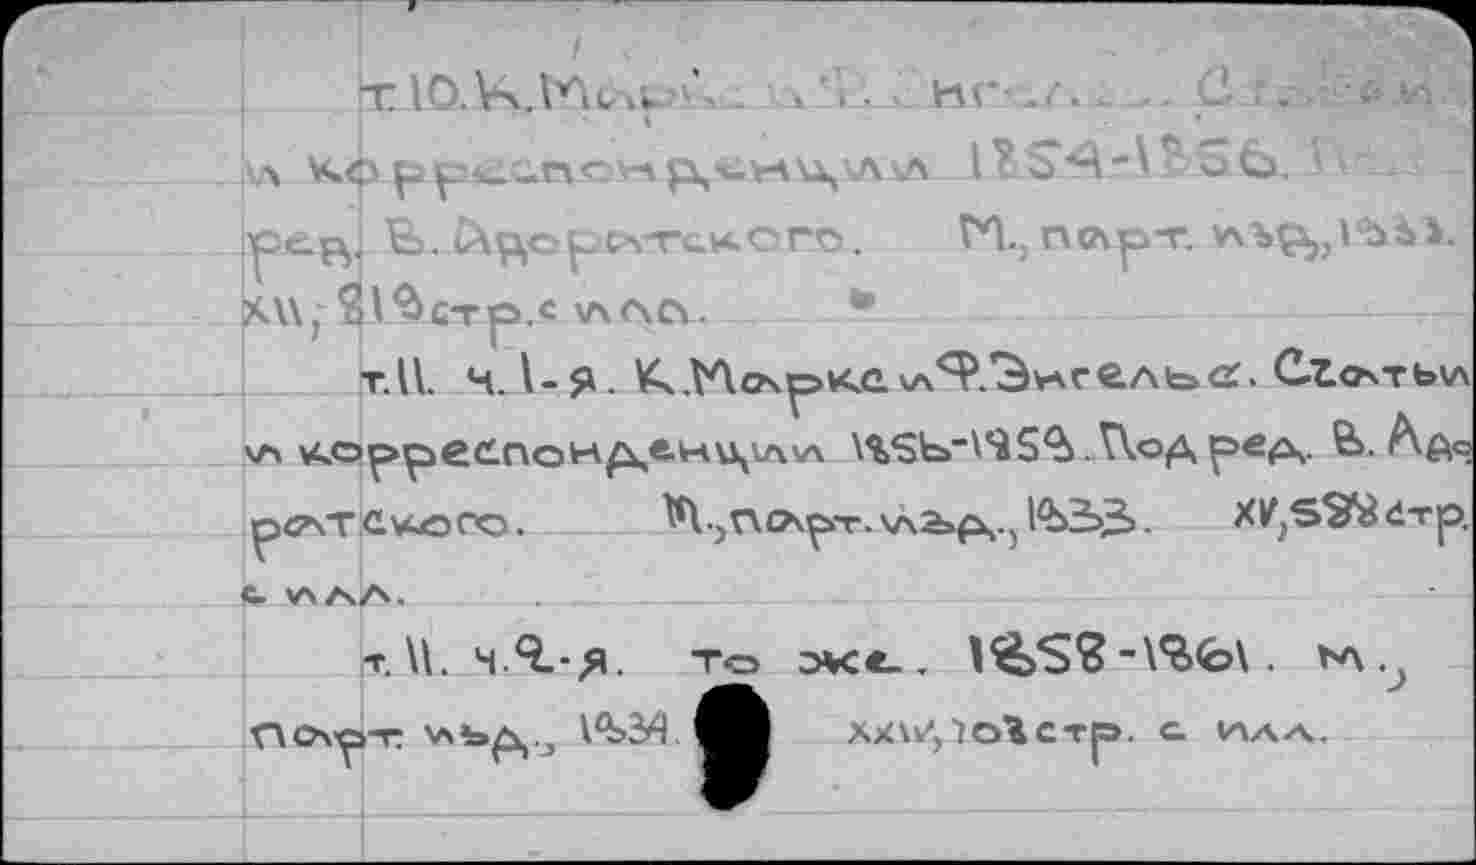 т.10. К.Маркс и Ф. Энгельс. Статьи
и корреспонденции 1854-1856. Под
ред. В. Адоратского. М., парт. изд., 1933.
XII, 719 стр. с илл.
т.11. ч.1-я. К.Маркса и Ф.Энгельса. Статьи
и корреспонденции 1856-1859. Под ред. В. Адо
ратского. М., парт. изд., 1933. XV, 598 стр.
с илл.
т.11. ч.2-я. то же. 1858-1861. м.,
парт. изд., 1934. стр. с илл.